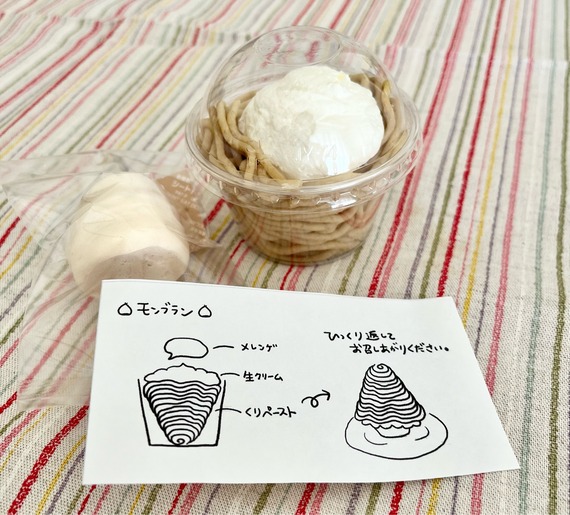 モンブラン
メレンゲ
生クリーム
くりペースト
ひっくり返して
お召しあがりください。